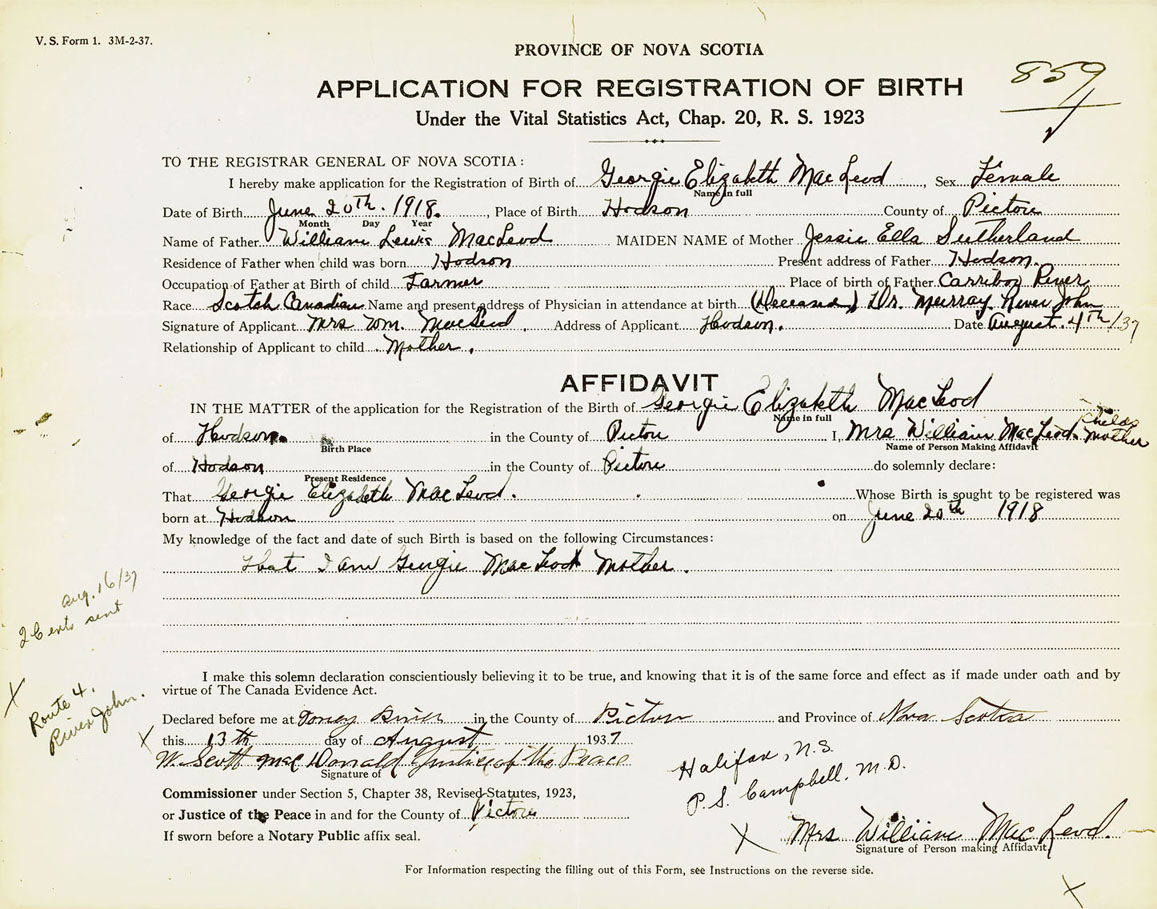 V. S. Form 1. 3M-2-37.
PROVINCE OF NOVA SCOTIA
859
APPLICATION FOR REGISTRATION OF BIRTH
Under the Vital Statistics Act, Chap. 20, R. S. 1923
TO THE REGISTRAR GENERAL OF NOVA SCOTIA:
I hereby make application for the Registration of Birth of Georgie Elizabeth MacLeod, Sex Female
Name in full
Date of Birth June 20th. 1918., Place of Birth Hodson County of Pictou
Month Day Year
Name of Father William Lewis MacLeod MAIDEN NAME of Mother Jessie Ella Sutherland
Residence of Father when child was born Hodson Present address of Father Hodson.
Occupation of Father at Birth of child Farmer Place of birth of Father Carriboo River
Race Scotch Canadian Name and present address of Physician in attendance at birth (Deceased) Dr. Murray River John
Signature of Applicant Mrs Wm. MacLeod, Address of Applicant Hodson. Date August. 4th/37
Relationship of Applicant to child Mother.
AFFIDAVIT
IN THE MATTER of the application for the Registration of the Birth of Georgie Elizabeth MacLeod
Name in full
of Hodson. in the County of Pictou I, Mrs William MacLeod. Childs Mother
Birth Place Name of Person Making Affidavit
of Hodson in the County of Pictou do solemnly declare:
Present Residence
That Georgie Elizabeth MacLeod. Whose Birth is sought to be registered was
born at Hodson on June 20th 1918
My knowledge of the fact and date of such Birth is based on the following Circumstances:
that I am Georgie MacLeod Mother.
Aug. 16/37
2 Cents sent
I make this solemn declaration conscientiously believing it to be true, and knowing that it is of the same force and effect as if made under oath and by
virtue of The Canada Evidence Act.
Route 4.
River John.
Declared before me at Toney River in the County of Pictou and Province of Nova Scotia
this 13th day of August 1937
W. Scott MacDonald Justice of the Peace
Signature of
Halifax, N.S.
P.S. Campbell. M.D.
Commissioner under Section 5, Chapter 38, Revised Statutes, 1923,
or Justice of the Peace in and for the County of Pictou
If sworn before a Notary Public affix seal.
Mrs William MacLeod.
Signature of Person making Affidavit
For Information respecting the filling out of this Form, see Instructions on the reverse side.